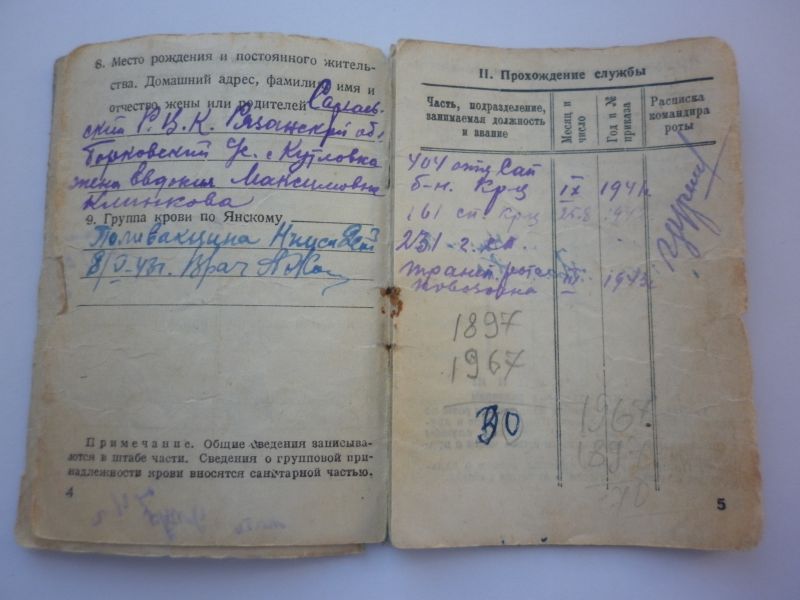 8. Место рождения и постоянного житель-
ства. Домашний адрес, фамилия, имя и
отчество жены или родителей Сараев-
ский Р.В.К. Рязанской об.
с. Кутловка
жена Евдокия Максимовна
Клинкова
9. Группа крови по Янскому
Поливакцина
8/V-43г. Врач
Примечание. Общие сведения записыва-
ются в штабе части. Сведения о групповой при-
надлежности крови вносятся санитарной частью.
4
II. Прохождение службы
Часть, подразделение, занимаемая должность и звание
Месяц и число
Год и № приказа
Расписка командира роты
404 отд сап
б-н. кр-ц IX 1941г
161 сп. кр-ц 25.8
231
1943г
1897
1967
30
1967
1897
70
5